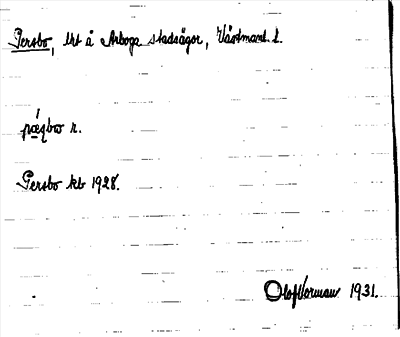 Persbo, lht å Arboga stadsägor, Västmanl. l.
Persbo kb 1928.
Olof Norman 1931.